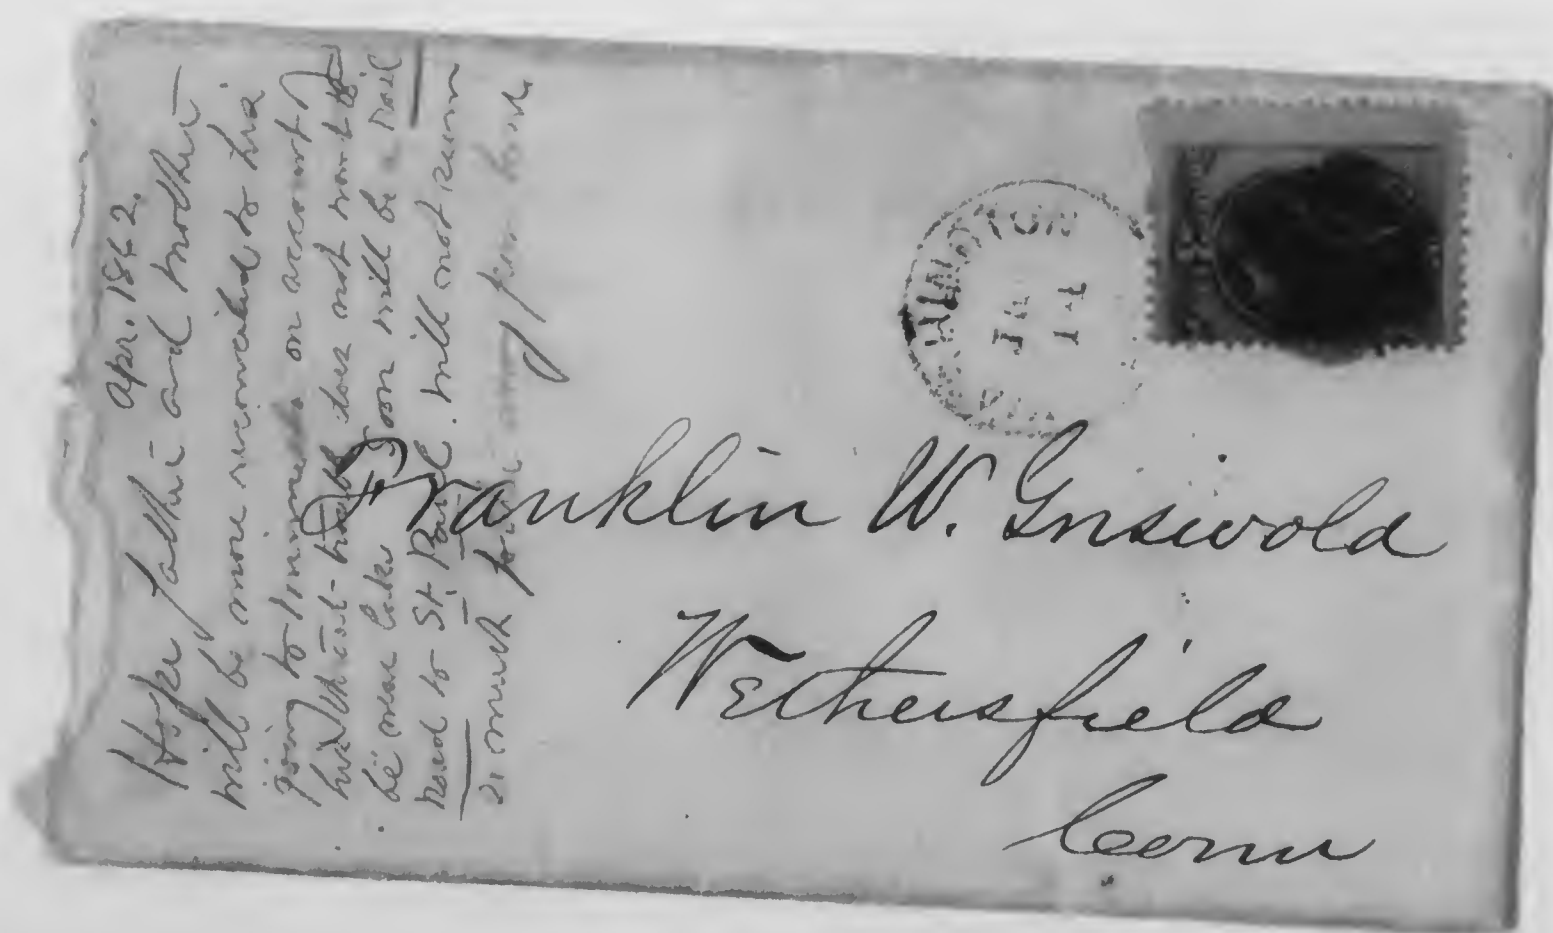 Apr. 1862.
Hope father and mother
will be more reconciled to his
going to Minnesota on account of
his throat - throat does not want to
be near lake. Soon will be a rail
road to St. Paul. Will not seem
so much far away from home
WASHINGTON
JA
14
Franklin W. Griswold
Wethersfield
Conn